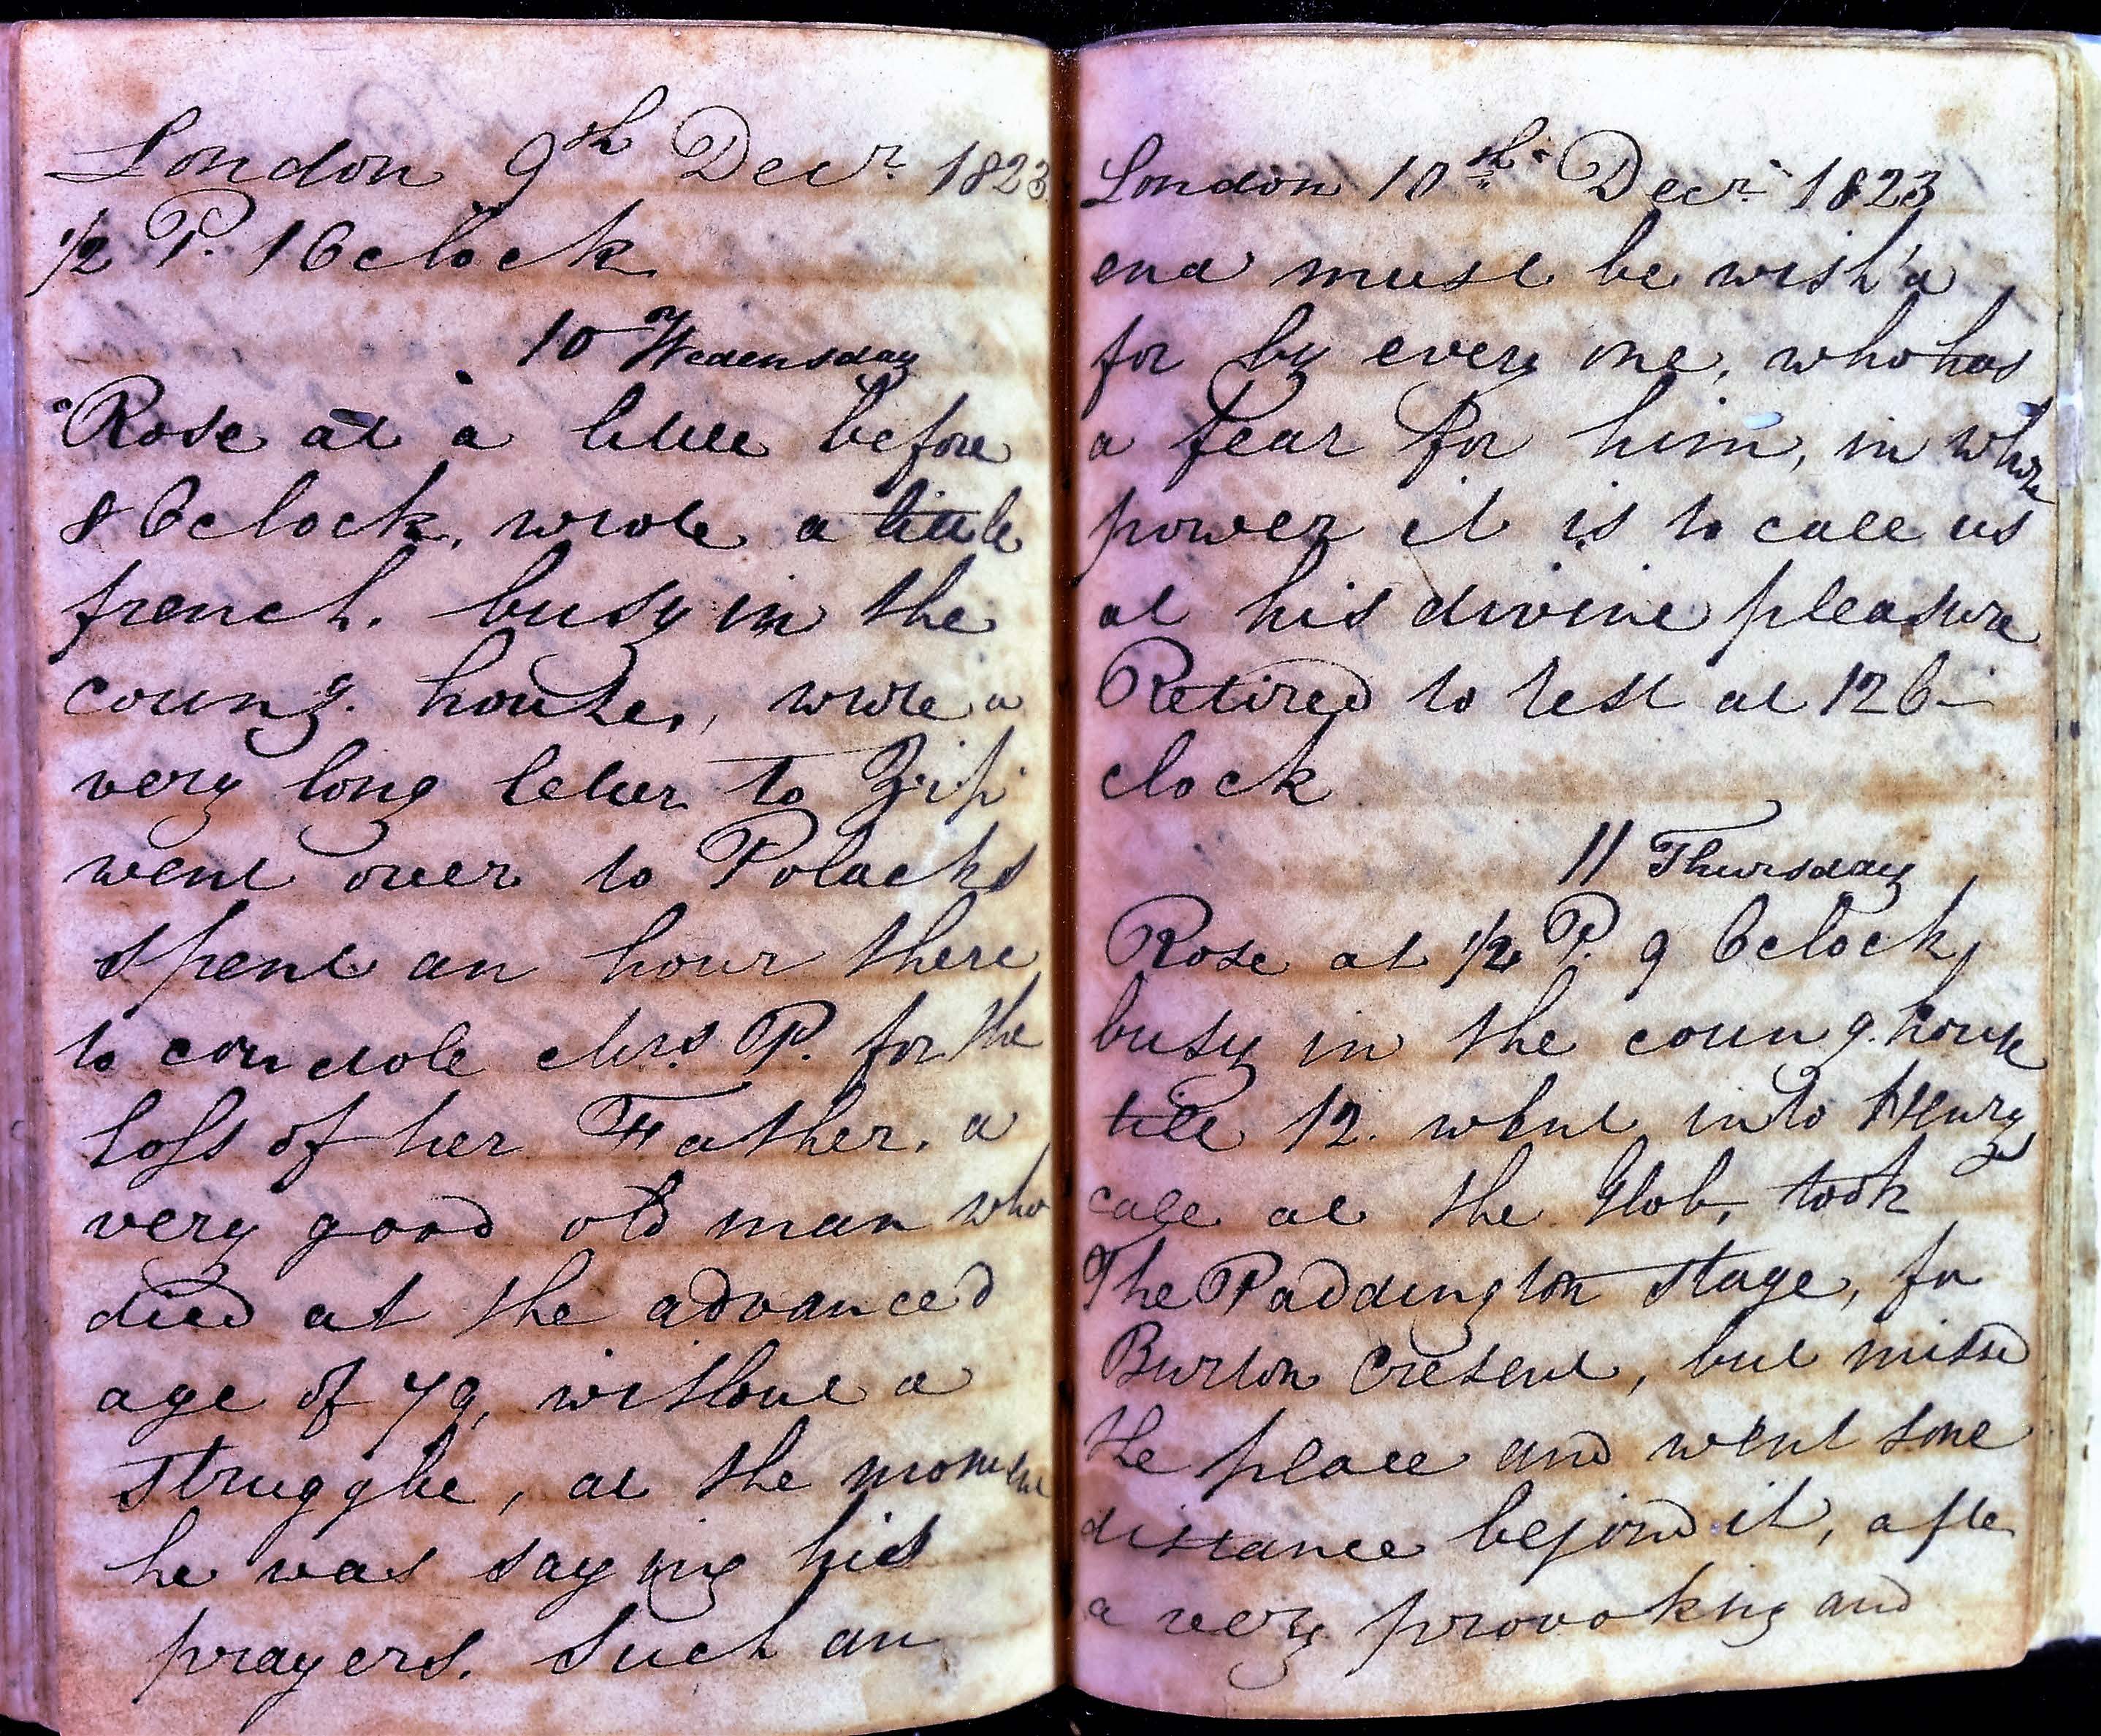 London 9th Decr. 1823
1/2 P. 1 Oclock
10 Wedensday
Rose at a little before
8 Oclock, wrote a little
french. busy in the
coung. house, wrote a
very long letter to Zipi
went over to Polacks
spent an hour there
to condole Mrs P. for the
loss of her Father. a
very good old man who
died at the advanced
age of 79, without a
struggle, at the moment
he was saying his
prayers. Such an
London 10th. Decr. 1823
end must be wish'd
for by every one, who has
a fear for him, in whose
power it is to call us
at his divine pleasure
Retired to rest at 12 O-
clock
11 Thursday
Rose at 1/2 P. 9 Oclock,
busy in the coung. house
till 12. went into Henrys
call at the Glob, took
The Paddington stage, for
Burton Cresent, but missd
the place and went some
distance bejond it, after
a very provoking and